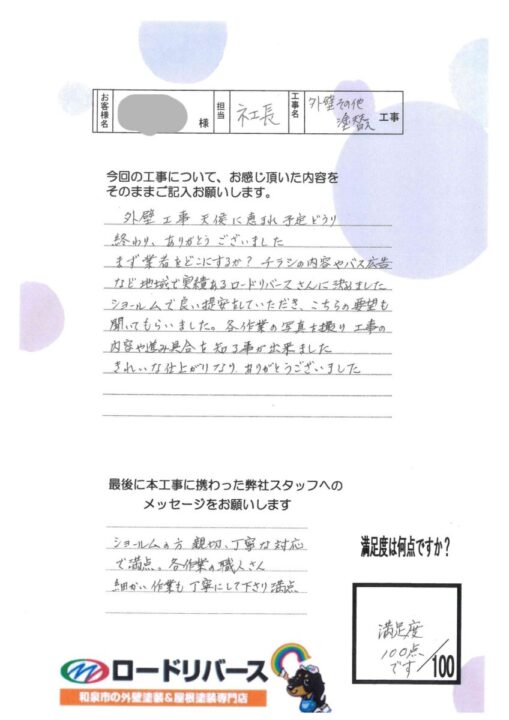 お客様名 様 担当 社長 工事名 外壁その他塗替え 工事
今回の工事について、お感じ頂いた内容を
そのままご記入お願いします。
外壁工事 天候に恵まれ 予定どうり
終わり、ありがとうございました
まず業者をどこにするか? チラシの内容やバス広告
など地域で実績あるロードリバースさんに決めました
ショールムで良い提案をしていただき、こちらの要望も
聞いてもらいました。各作業の写真を撮り 工事の
内容や進み具合を知る事が出来ました
きれいな仕上がりなり ありがとうございました
最後に本工事に携わった弊社スタッフへの
メッセージをお願いします
ショールムの方 親切、丁寧な対応
で満点。各作業の職人さん
細かい作業も丁寧にして下さり満点。
満足度は何点ですか?
満足度
100点
です /100
ロードリバース
和泉市の外壁塗装&屋根塗装専門店